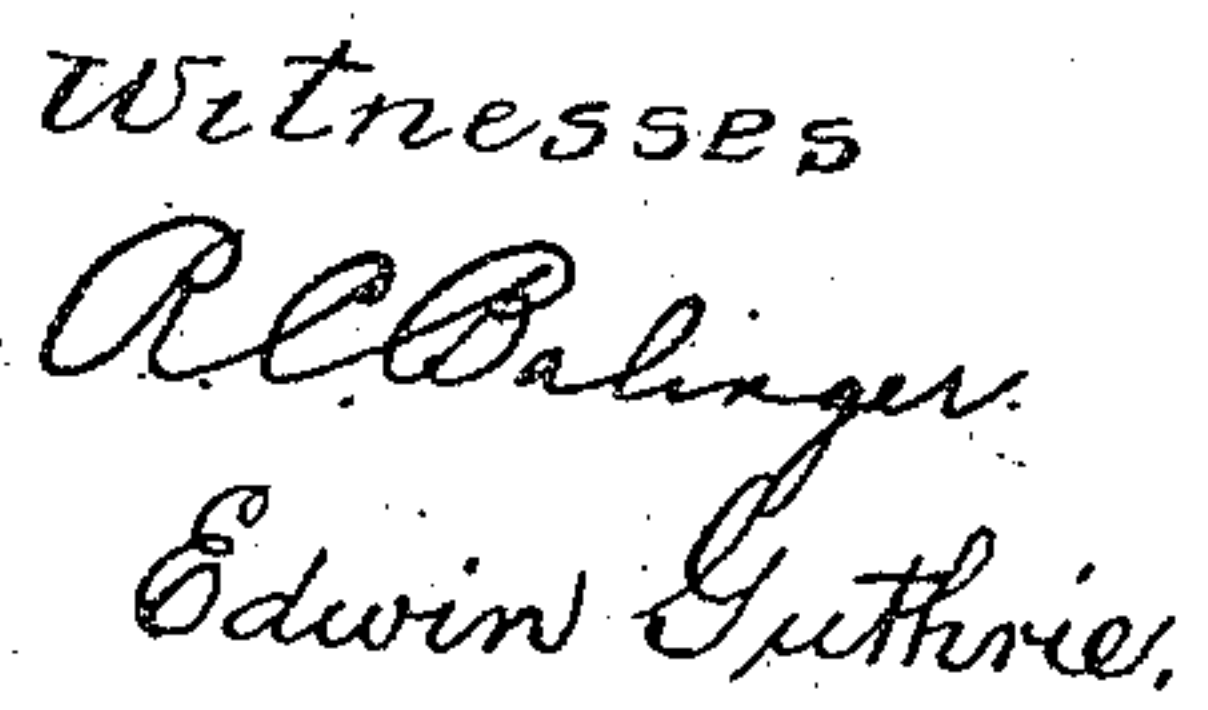 Witnesses
R. C. Balinger.
Edwin Guthrie.